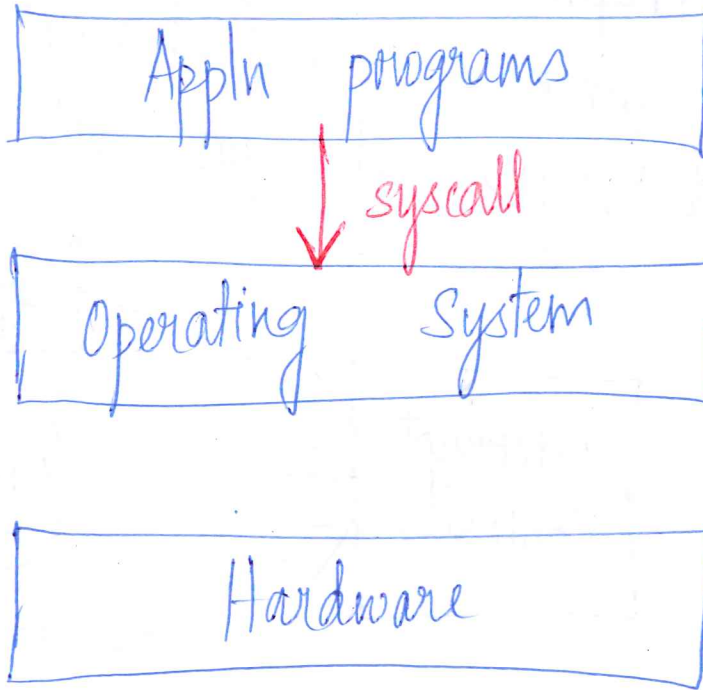 Appln programs
syscall
Operating System
Hardware